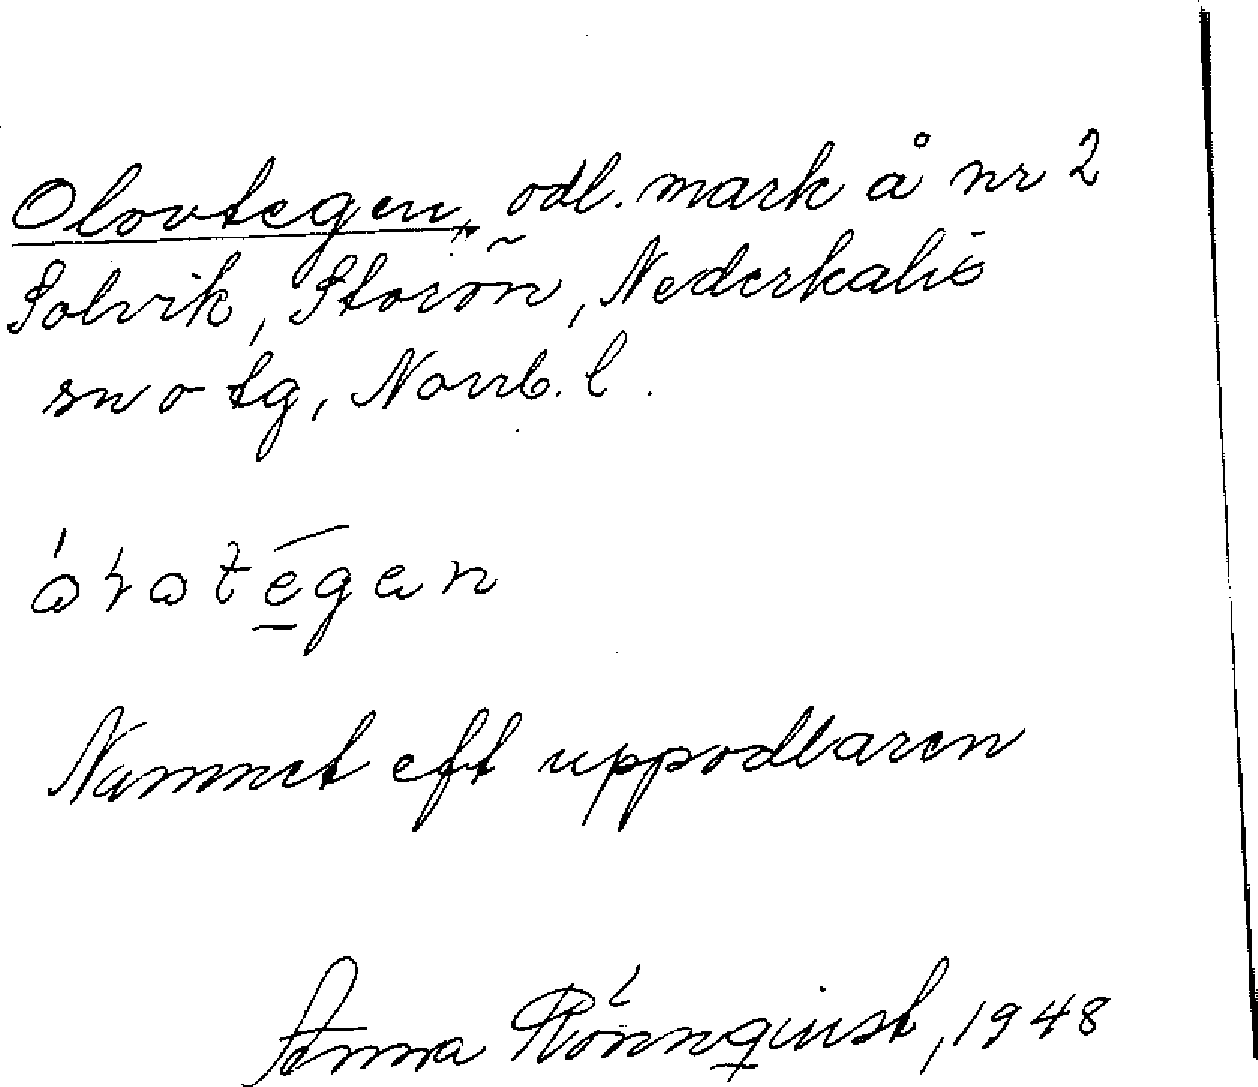 Olovtegen, odl. mark å nr 2
Solvik, Storön, Nederkalix
sn o tg, Norrb. l.
Namnet eft uppodlaren
Anna Rönnquist, 1948